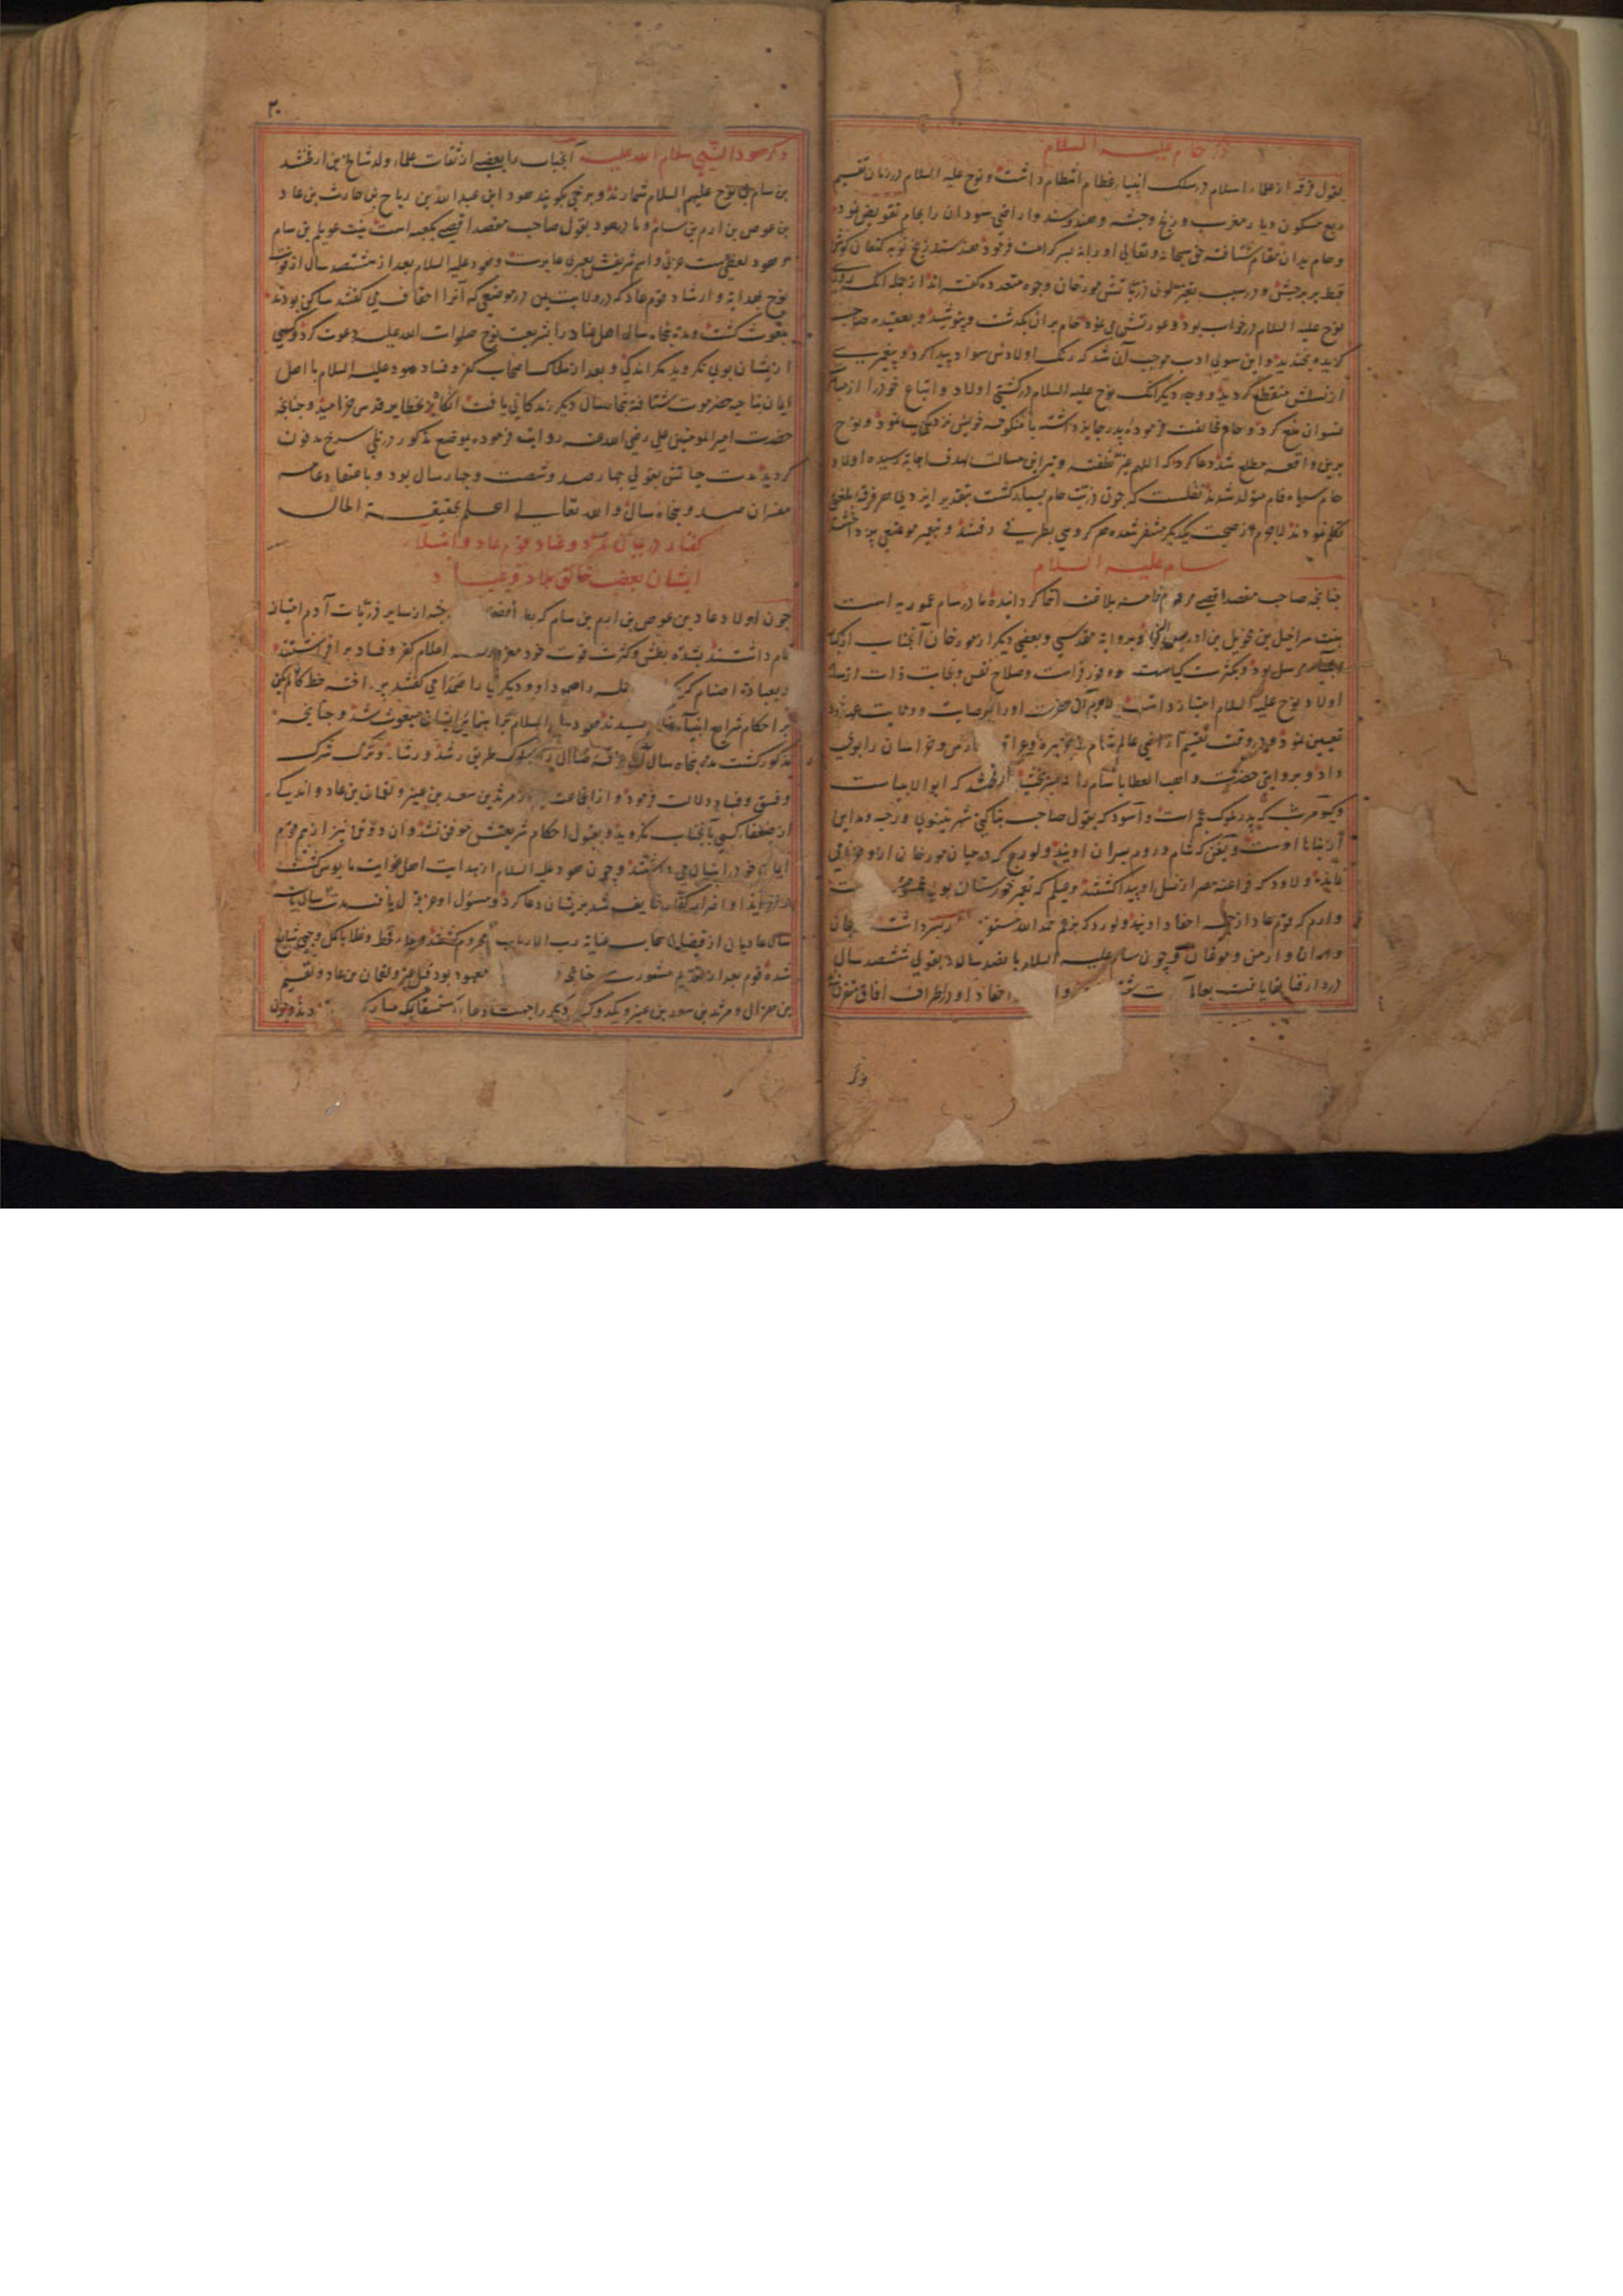 ذکر حام علیه السلام
بقول فرقه از علماء اسلام در سلک انبیاء عظام انتظام داشت و نوح علیه السلام در زمان تقسیم
ربع مسکون دیار مغرب و زنج و حبشه و هند و سند و اراضی سودان را بحام تفویض نموده
و حام بدان مقام شتافته حق سبحانه و تعالی او را نه پسر کرامت فرمود هند سند زنج نوبه کنعان کوش
قبط بربر حبش و در سبب تغیر لون ذریاتش مورخان وجوه متعدده گفته اند از جمله آنکه روزی
نوح علیه السلام در خواب بود و عورتش می نمود حام بران بگذشت و نپوشید و بعقیده صاحب
گزیده بخندید و این سوی ادب موجب آن شد که رنگ اولادش سواد پیدا کرد و پیغمبری
از نسلش منقطع گردید و وجه دیگر آنک نوح علیه السلام در کشتی اولاد و اتباع خود را از
نسوان منع کرد و حام مخالفت فرموده پدر جایز داشته با منکوحه خویش نزدیکی نمود و نوح
برین واقعه مطلع شد دعا کرد که اللهم غیر نطفته و تیر این مسالت بهدف اجابة رسیده اولاد
حام سیاه فام متولد شدند نقلست که چون ذریت حام بسیار گشت بتقدیر ایزدی هر فرقه بلغتی
تکلم نمودند لاجرم از صحبت یکدیگر متنفر شده هر گروهی بطرفی رفتند و بتعمیر موضعی پرداختند
سام علیه السلام
چنانچه صاحب مقصد اقصی مرقوم خامه بلاغت انتما گردانیده مادر سام عموریه است
بنت براخیل بن محویل بن ادریس النبی و بروایة مقدسی و بعضی دیگر از مورخان آنجناب از
مرسل بود و بکثرت کیاست و وفور فراست و صلاح نفس و نجابت ذات از سایر
اولاد نوح علیه السلام امتیاز داشت لاجرم آن حضرت او را بوصایت و ولایت عهد خود
تعیین نمود و در وقت تقسیم اراضی عالم شام و جزیره و عراق فارس و خراسان را بوی
داد و بروایتی حضرت واهب العطایا سام را پسر بخشید ارفخشد که ابو الانبیاست
و کیومرث که پدر ملوک عجم است و اسود که بقول صاحب بناکتی شهر نینوی و رحبه و مداین
از بناها اوست و یفن که شام و روم پسران اویند و لورج که در میان مورخان ازو
نمانده و لاود که فراعنه مصر از نسل او پیدا گشتند و عیلم که تعمیر خورستان بوی
و ارم که قوم عاد از جمله احفاد اویند و لورد که بزعم حمد الله مستوفی پسر داشت
و اران و ارمن و موغان و چون سام علیه السلام پانصد سال و بقولی ششصد سال
در دار فنا بقا یافت بعالم احفاد او در اطراف آفاق متفرق
ذکر
۲۰
ذکر هود النبی سلام الله علیه آنجناب را بعضی از ثقات علماء ولد شالخ بن ارفخشد
بن سام بن نوح علیهم السلام شمارند و برخی گویند هود ابن عبد الله بن ریاح بن حارث بن عاد
بن عوص بن ارم بن سام و مادر هود بقول صاحب مقصد اقصی بکعبه است بنت عویلم بن سام
و هود لفظیست عربی و اسم شریفش بعبری عابرست و هود علیه السلام بعد از هشتصد سال از فوت
نوح بهدایة و ارشاد قوم عاد که در ولایت یمن در موضعی که آنرا احقاف می گفتند ساکن بودند
مبعوث گشت و مدة پنجاه سال اهل عناد را بشریعت نوح صلوات الله علیه دعوت کرد و کسی
از ایشان بوی نگروید مگر اندکی و بعد از هلاک اصحاب کفر و فساد هود علیه السلام با اهل
ایمان بناحیه حضرموت شتافته پنجاه سال دیگر زندگانی یافت آنگاه بحظایر قدس خرامید و چنانچه
حضرت امیر المومنین علی رضی الله عنه روایة فرموده بموضع مذکور در تلی سرخ مدفون
گردید مدت حیاتش بقولی چهار صد و شصت و چهار سال بود و باعتقاد عامه
مفسران صد و پنجاه سال و الله تعالی اعلم بحقیقة الحال
گفتار در بیان تمرد و عناد قوم عاد و ابتلاء
ایشان بغضب خالق عباد و بلاد
چون اولاد عاد بن عوص بن ارم بن سام که از سایر ذریات آدم امتیاز
تام داشتند بشدة بطش و کثرت قوت خود مغرور اعلام کفر و فساد بر افراشتند
و بعبادة اصنام را صمود او و دیگری را صدا می گفتند خط
بر احکام شرایع انبیاء کشیدند هود علیه السلام براهنمایی ایشان مبعوث شد و چنانچه
مذکور گشت مدة پنجاه سال آن فرقه ضال را بسلوک طریق رشد و رشاد و ترک شرک
و فسق و فساد دلالت فرمود و از آن جماعت مرثد بن سعد بن عفیر و لقمان بن عاد و اندکی
از ضعفا کسی بآنجناب نگروید و بقبول احکام شریعتش موفق نشد و آن دو تن نیز از بیم قوم
ایمان خود را پنهان می داشتند و چون هود علیه السلام از هدایت اهل غوایت مایوس گشت
و از ایذا و اضرار کفار خایف شد بریشان دعا کرد و مسئول او عز قبول یافته مدت سه سال
سال عادیان از فیضان سحاب عنایة رب الارباب محروم گشتند و
شده قوم بعد از تقدیم مشورت چنانچه معهود بود قیل بن عنز و لقمان بن عاد و لقیم
بن هزال و مرثد بن سعد بن عفیر و یکدو کس دیگر را جهت دعا استسقا بمکه مبارکه فرستادند و چون